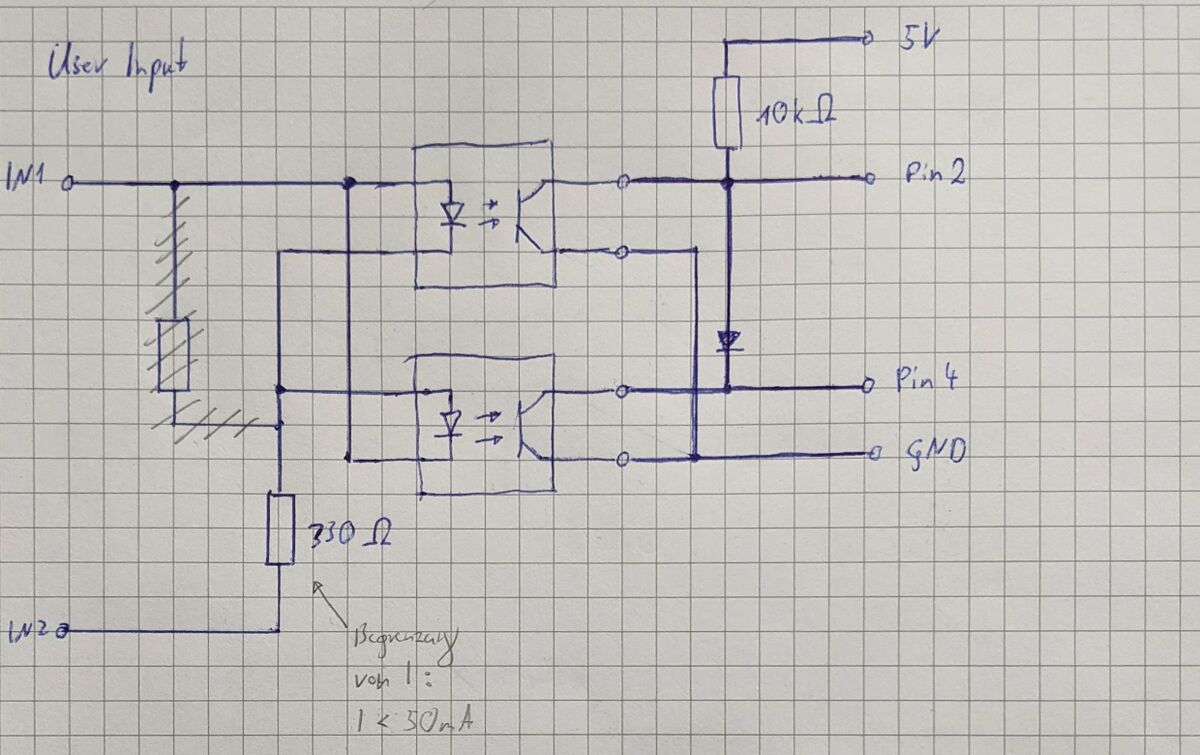 User Input
5V
10kΩ
IN1
Pin 2
Pin 4
GND
330 Ω
IN2
Begrenzung
von I:
I < 50mA